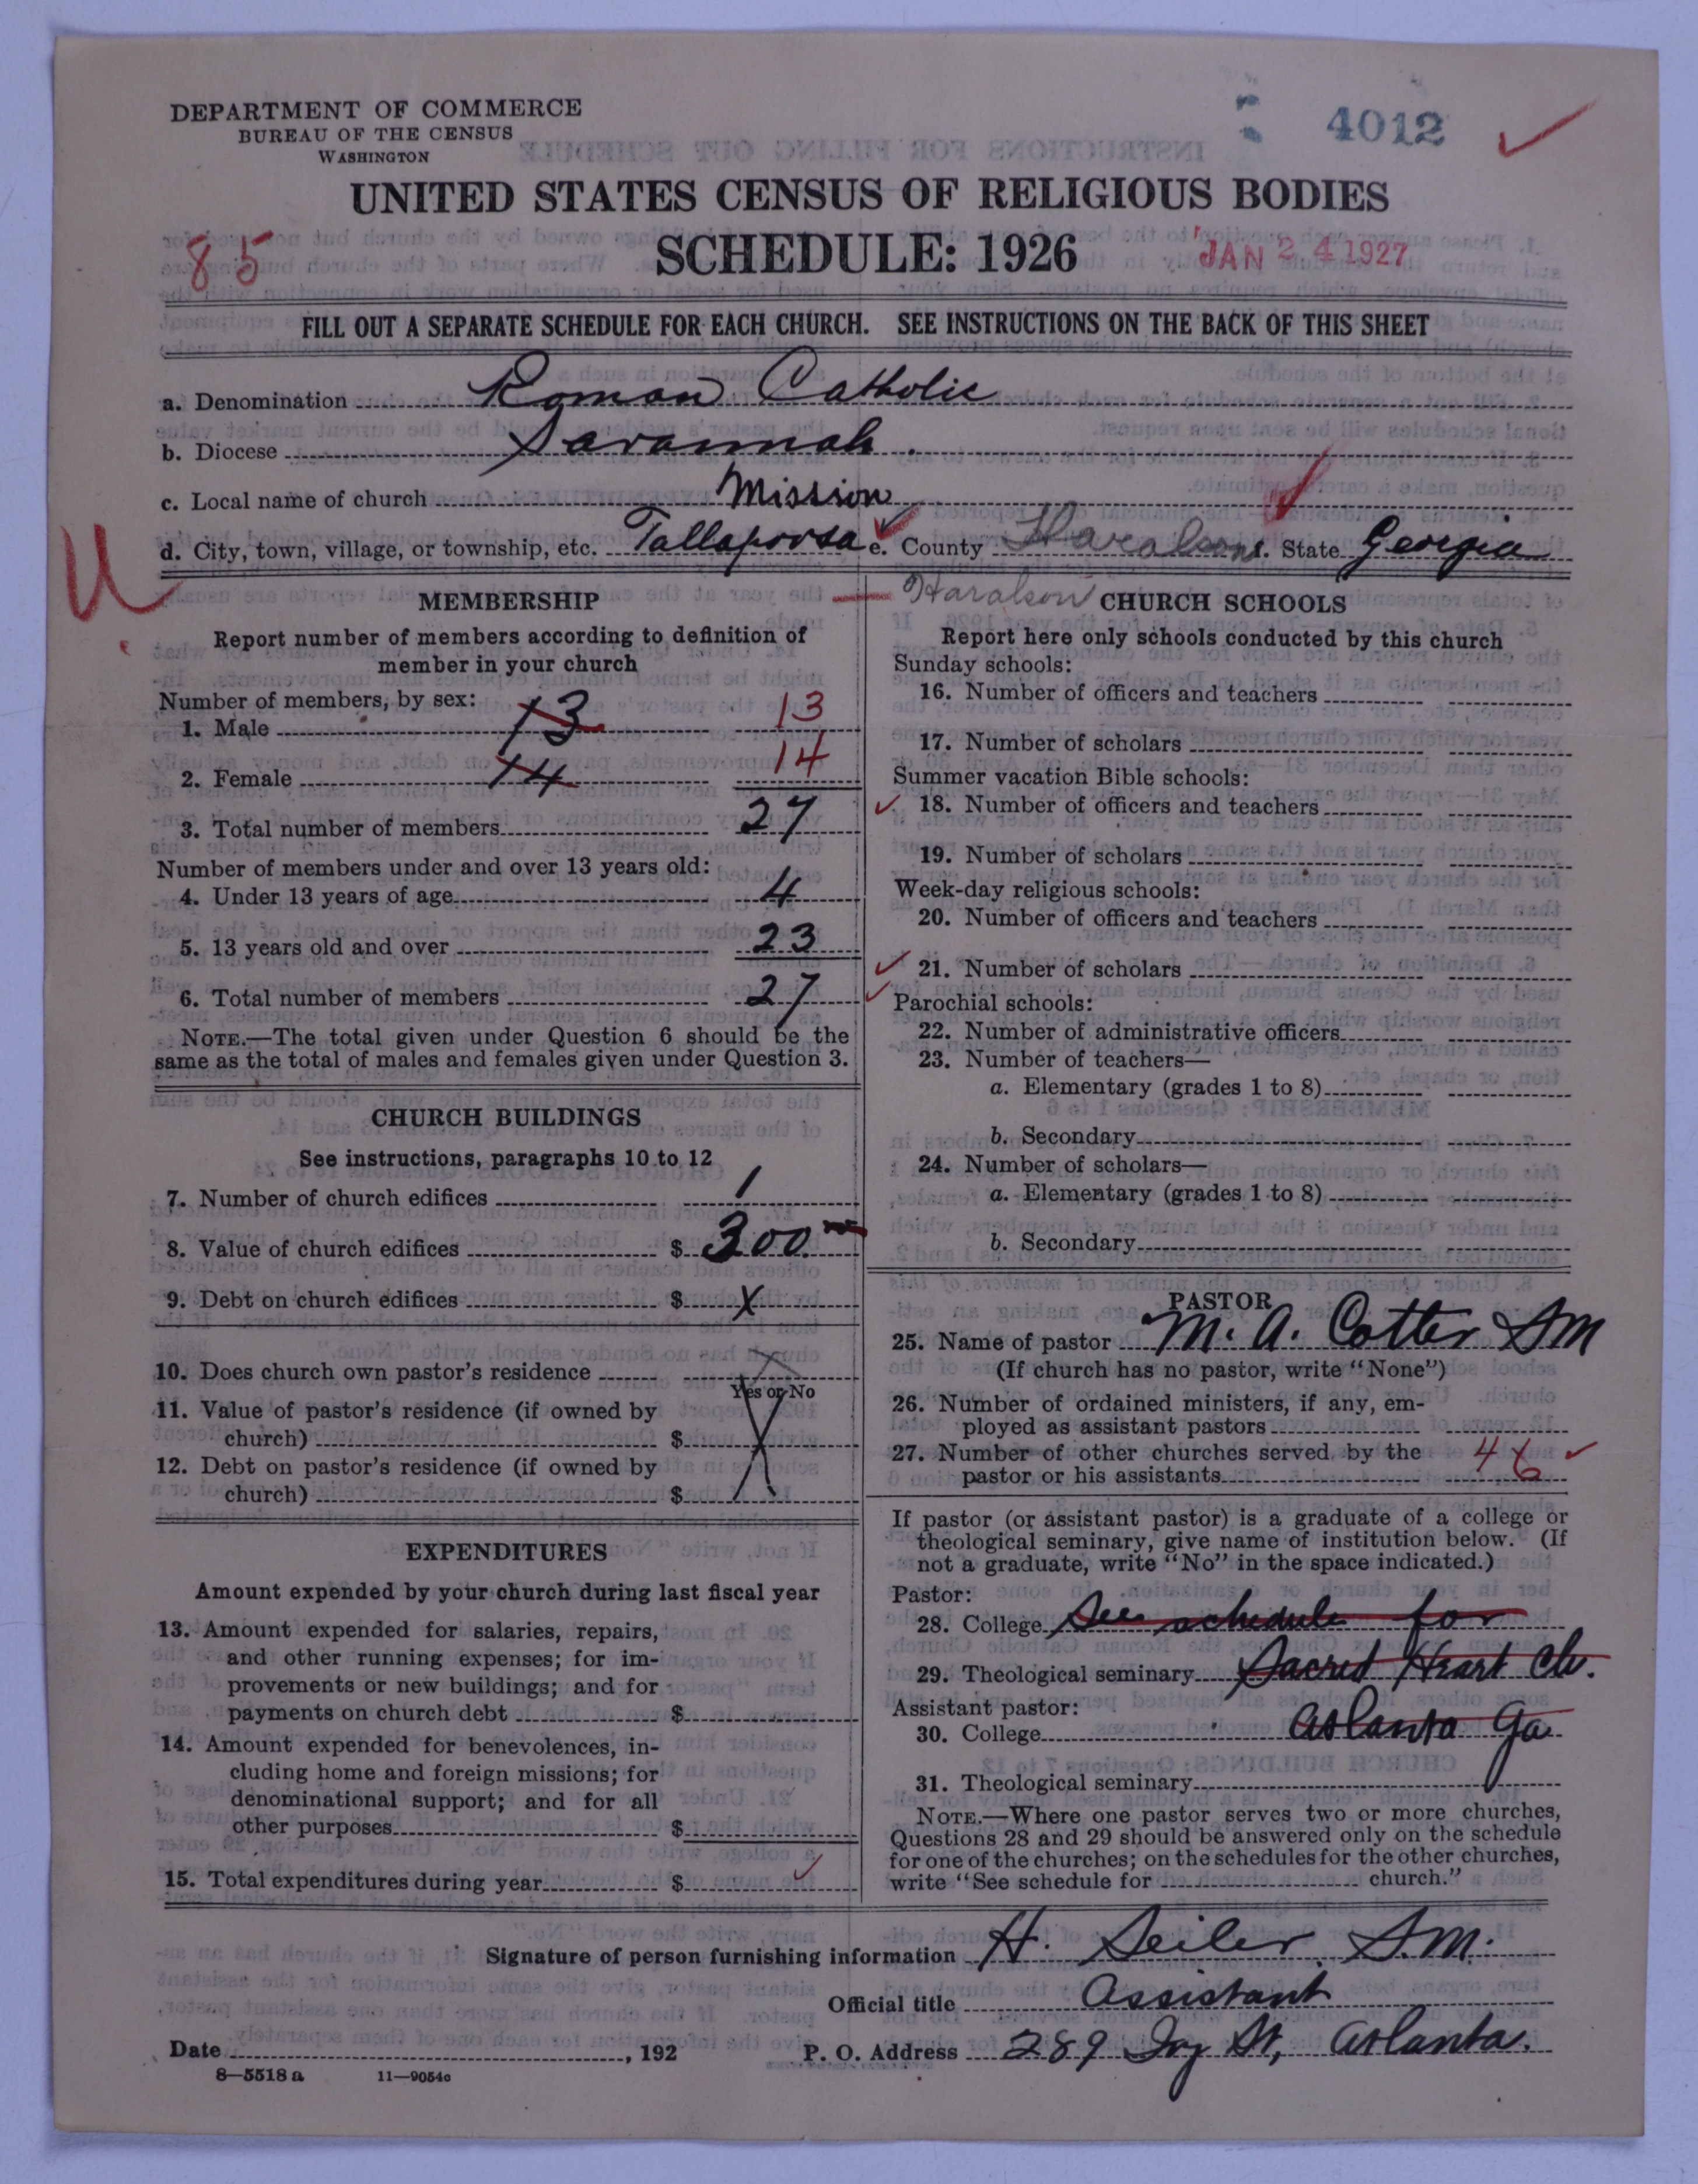 DEPARTMENT OF COMMERCE
BUREAU OF THE CENSUS
WASHINGTON
4012
UNITED STATES CENSUS OF RELIGIOUS BODIES
85
SCHEDULE: 1926
JAN 24 1927
FILL OUT A SEPARATE SCHEDULE FOR EACH CHURCH. SEE INSTRUCTIONS ON THE BACK OF THIS SHEET
a. Denomination Roman Catholic
b. Diocese Savannah.
c. Local name of church Mission
d. City, town, village, or township, etc. Tallapoosa e. County Haralson f. State Georgia
U
Haralson
MEMBERSHIP
Report number of members according to definition of
member in your church
Number of members, by sex:
1. Male 13 13
2. Female 14 14
3. Total number of members 27
Number of members under and over 13 years old:
4. Under 13 years of age 4
5. 13 years old and over 23
6. Total number of members 27
NOTE.—The total given under Question 6 should be the
same as the total of males and females given under Question 3.
CHURCH BUILDINGS
See instructions, paragraphs 10 to 12
7. Number of church edifices 1
8. Value of church edifices $ 300
9. Debt on church edifices $ X
10. Does church own pastor's residence
Yes or No
11. Value of pastor's residence (if owned by
church) $ X
12. Debt on pastor's residence (if owned by
church) $
EXPENDITURES
Amount expended by your church during last fiscal year
13. Amount expended for salaries, repairs,
and other running expenses; for im-
provements or new buildings; and for
payments on church debt $
14. Amount expended for benevolences, in-
cluding home and foreign missions; for
denominational support; and for all
other purposes $
15. Total expenditures during year $
CHURCH SCHOOLS
Report here only schools conducted by this church
Sunday schools:
16. Number of officers and teachers
17. Number of scholars
Summer vacation Bible schools:
18. Number of officers and teachers
19. Number of scholars
Week-day religious schools:
20. Number of officers and teachers
21. Number of scholars
Parochial schools:
22. Number of administrative officers
23. Number of teachers—
a. Elementary (grades 1 to 8)
b. Secondary
24. Number of scholars—
a. Elementary (grades 1 to 8)
b. Secondary
PASTOR
25. Name of pastor M. A. Cotter SM
(If church has no pastor, write "None")
26. Number of ordained ministers, if any, em-
ployed as assistant pastors
27. Number of other churches served by the
pastor or his assistants 4
If pastor (or assistant pastor) is a graduate of a college or
theological seminary, give name of institution below. (If
not a graduate, write "No" in the space indicated.)
Pastor:
28. College See schedule for
29. Theological seminary Sacred Heart Ch.
Assistant pastor:
30. College Atlanta Ga
31. Theological seminary
NOTE.—Where one pastor serves two or more churches,
Questions 28 and 29 should be answered only on the schedule
for one of the churches; on the schedules for the other churches,
write "See schedule for church."
Signature of person furnishing information H. Seiler S.M.
Official title Assistant
Date , 192
P. O. Address 289 Ivy St, Atlanta.
8—5518a 11—9054c